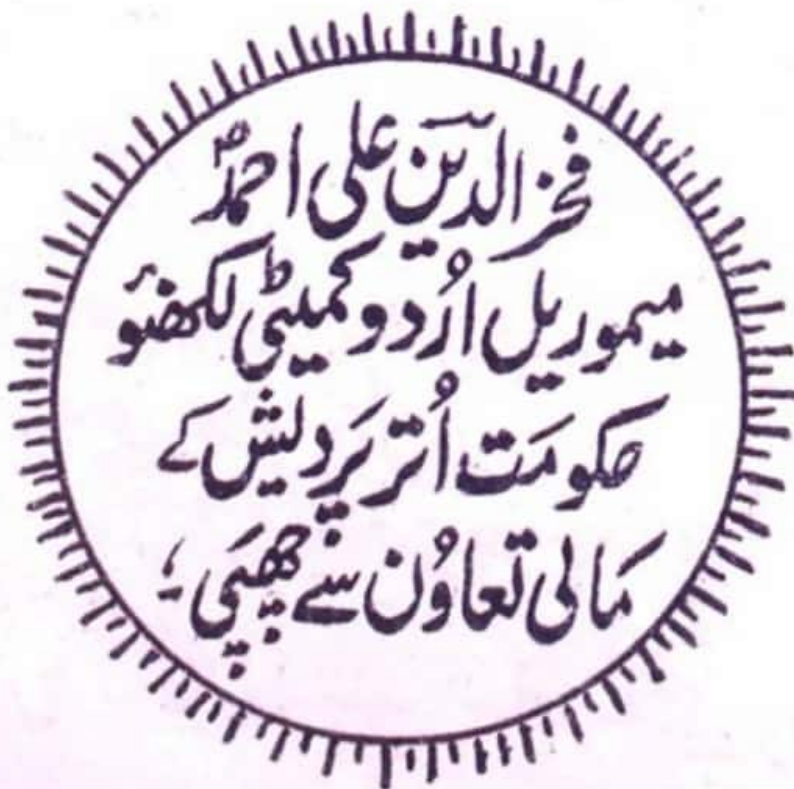 فخر الدین علی احمدؒ
میموریل اُردو کمیٹی لکھنؤ
حکومَت اُتر پَردیش کے
مَالی تعاوُن سے چھپَی ؛